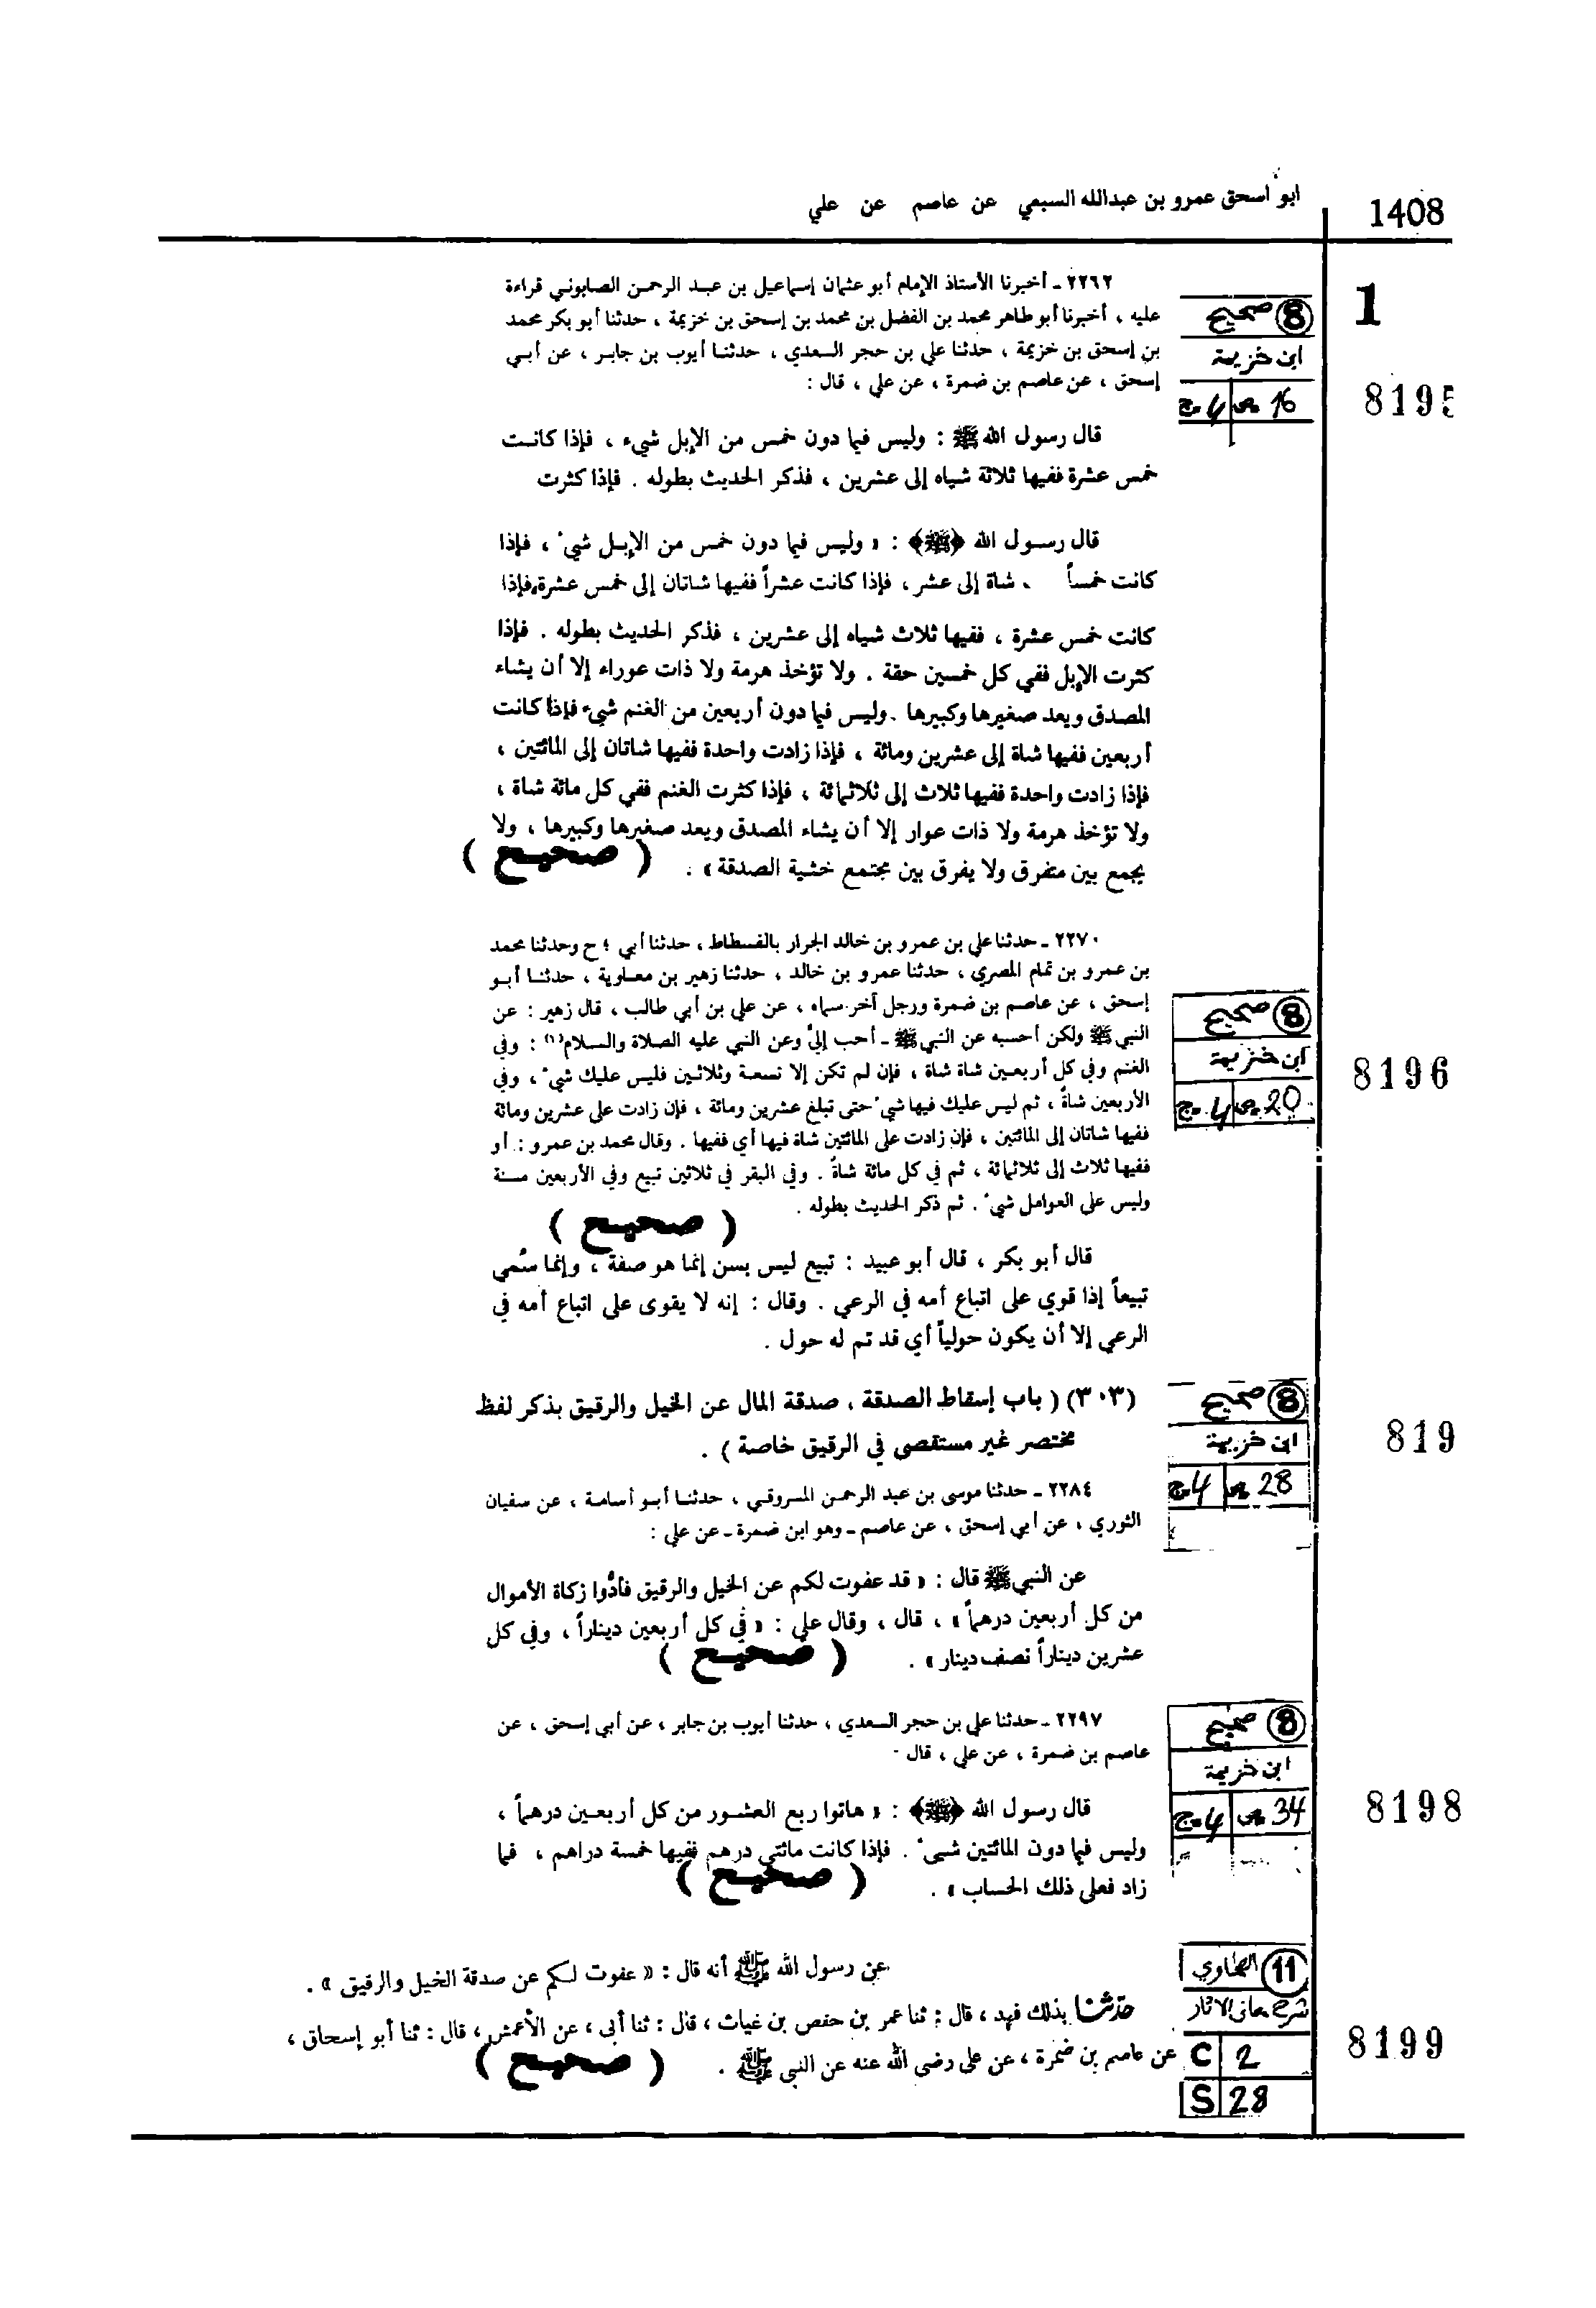 1408
ابو اسحق عمرو بن عبدالله السبعي عن عاصم عن علي
1
8195
8 صحيح
ابن خزيمة
ج 4 ص 16
٢٢٦٢ ـ أخبرنا الأستاذ الإمام أبو عثمان إسماعيل بن عبد الرحمن الصابوني قراءة
عليه ، أخبرنا أبو طاهر محمد بن الفضل بن محمد بن إسحق بن خزيمة ، حدثنا أبو بكر محمد
بن إسحق بن خزيمة ، حدثنا علي بن حجر السعدي ، حدثنا أيوب بن جابر ، عن أبي
إسحق ، عن عاصم بن ضمرة ، عن علي ، قال :
قال رسول الله ﷺ : وليس فيما دون خمس من الإبل شيء ، فإذا كانت
خمس عشرة ففيها ثلاثة شياه إلى عشرين ، فذكر الحديث بطوله . فإذا كثرت
قال رسول الله (ﷺ) : « وليس فيما دون خمس من الإبل شيء ، فإذا
كانت خمساً ، شاة إلى عشر ، فإذا كانت عشراً ففيها شاتان إلى خمس عشرة، فإذا
كانت خمس عشرة ، ففيها ثلاث شياه إلى عشرين ، فذكر الحديث بطوله . فإذا
كثرت الإبل ففي كل خمسين حقة . ولا تؤخذ هرمة ولا ذات عوراء إلا أن يشاء
المصدق ويعد صغيرها وكبيرها . وليس فيما دون أربعين من الغنم شيء فإذا كانت
أربعين ففيها شاة إلى عشرين ومائة ، فإذا زادت واحدة ففيها شاتان إلى المائتين ،
فإذا زادت واحدة ففيها ثلاث إلى ثلاثمائة ، فإذا كثرت الغنم ففي كل مائة شاة ،
ولا تؤخذ هرمة ولا ذات عوار إلا أن يشاء المصدق ويعد صغيرها وكبيرها ، ولا
يجمع بين متفرق ولا يفرق بين مجتمع خشية الصدقة » . ( صحيح )
8196
8 صحيح
ابن خزيمة
ج 4 ص 20
٢٢٧٠ ـ حدثنا علي بن عمرو بن خالد الجرار بالفسطاط ، حدثنا أبي ؛ ح وحدثنا محمد
بن عمرو بن تمام المصري ، حدثنا عمرو بن خالد ، حدثنا زهير بن معاوية ، حدثنا أبو
إسحق ، عن عاصم بن ضمرة ورجل آخر سماه ، عن علي بن أبي طالب ، قال زهير : عن
النبي ﷺ ولكن أحسبه عن النبي ﷺ ـ أحب إليَّ وعن النبي عليه الصلاة والسلام(١) : وفي
الغنم وفي كل أربعين شاة شاة ، فإن لم تكن إلا تسعة وثلاثين فليس عليك شيء ، وفي
الأربعين شاةً ، ثم ليس عليك فيها شيء حتى تبلغ عشرين ومائة ، فإن زادت على عشرين ومائة
ففيها شاتان إلى المائتين ، فإن زادت على المائتين شاة فيها أي ففيها . وقال محمد بن عمرو : أو
ففيها ثلاث إلى ثلاثمائة ، ثم في كل مائة شاةً . وفي البقر في ثلاثين تبيع وفي الأربعين مسنة
وليس على العوامل شيء . ثم ذكر الحديث بطوله .
( صحيح )
قال أبو بكر ، قال أبو عبيد : تبيع ليس بسن إنما هو صفة ، وإنما سُمي
تبيعاً إذا قوي على اتباع أمه في الرعي . وقال : إنه لا يقوى على اتباع أمه في
الرعي إلا أن يكون حولياً أي قد تم له حول .
819
8 صحيح
ابن خزيمة
ج 4 ص 28
(٣٠٣) ( باب إسقاط الصدقة ، صدقة المال عن الخيل والرقيق بذكر لفظ
مختصر غير مستقصى في الرقيق خاصة ) .
٢٢٨٤ ـ حدثنا موسى بن عبد الرحمن المسروقي ، حدثنا أبو أسامة ، عن سفيان
الثوري ، عن أبي إسحق ، عن عاصم ـ وهو ابن ضمرة ـ عن علي :
عن النبي ﷺ قال : « قد عفوت لكم عن الخيل والرقيق فأدُّوا زكاة الأموال
من كل أربعين درهماً » ، قال ، وقال علي : « في كل أربعين ديناراً ، وفي كل
عشرين ديناراً نصف دينار » . ( صحيح )
8198
8 صحيح
ابن خزيمة
ج 4 ص 34
٢٢٩٧ ـ حدثنا علي بن حجر السعدي ، حدثنا أيوب بن جابر ، عن أبي إسحق ، عن
عاصم بن ضمرة ، عن علي ، قال -
قال رسول الله (ﷺ) : « هاتوا ربع العشور من كل أربعين درهماً ،
وليس فيما دون المائتين شيء . فإذا كانت مائتي درهم ففيها خمسة دراهم ، فما
زاد فعلى ذلك الحساب » . ( صحيح )
8199
11 الطحاوي
شرح معاني الاثار
C 2
S 28
عن رسول الله ﷺ أنه قال : « عفوت لكم عن صدقة الخيل والرقيق » .
حدثنا بذلك فهد ، قال : ثنا عمر بن حفص بن غياث ، قال : ثنا أبي ، عن الأعمش ، قال : ثنا أبو إسحاق ،
عن عاصم بن ضمرة ، عن علي رضى الله عنه عن النبي ﷺ . ( صحيح )